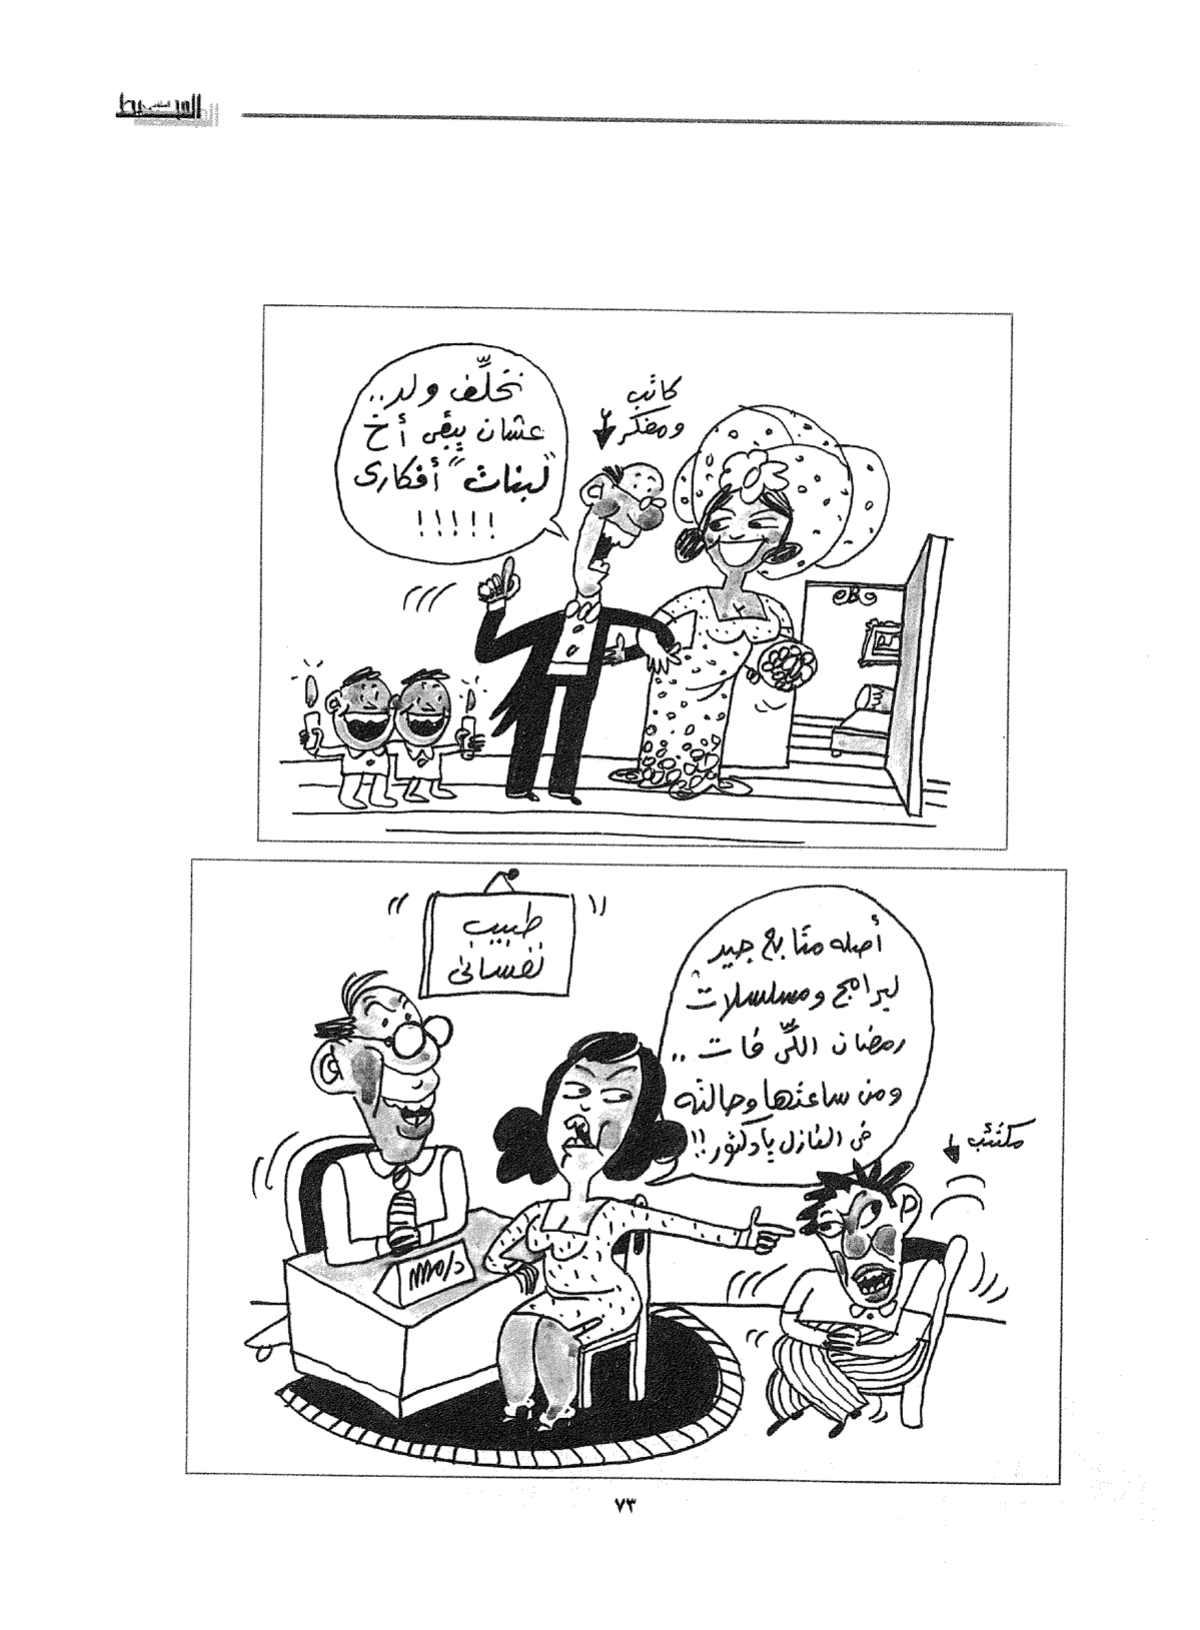 نخلِّف ولد..
عشان يبقى أخ
"لبنات" أفكارى
!!!!!
كاتب
ومفكر
طبيب
نفسانى
أصله متابع جيد
لبرامج ومسلسلات
رمضان اللِّى فات..
ومن ساعتها وحالته
فى النازل يا دكتور!!
مكتئب
٧٣